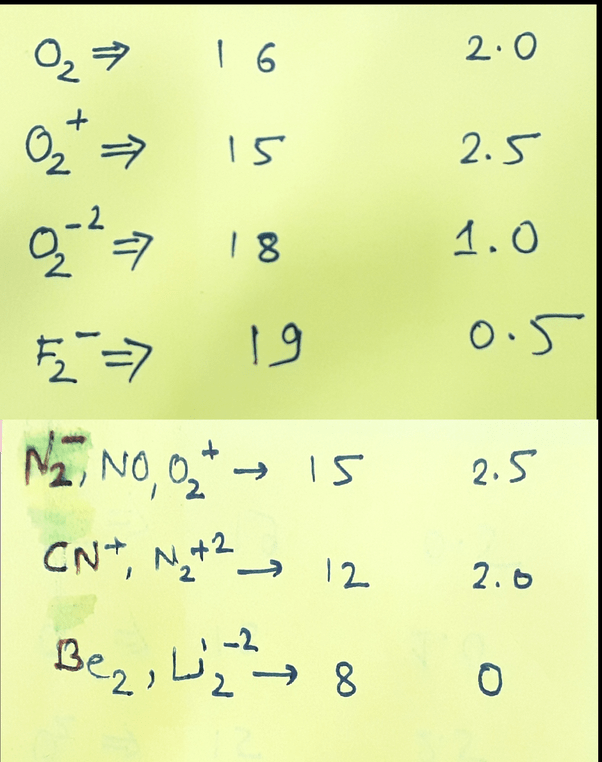 O₂ ⇒ 16 2.0
O₂⁺ ⇒ 15 2.5
O₂⁻² ⇒ 18 1.0
F₂⁻ ⇒ 19 0.5
N₂⁻, NO, O₂⁺ → 15 2.5
CN⁺, N₂⁺² → 12 2.0
Be₂, Li₂⁻² → 8 0